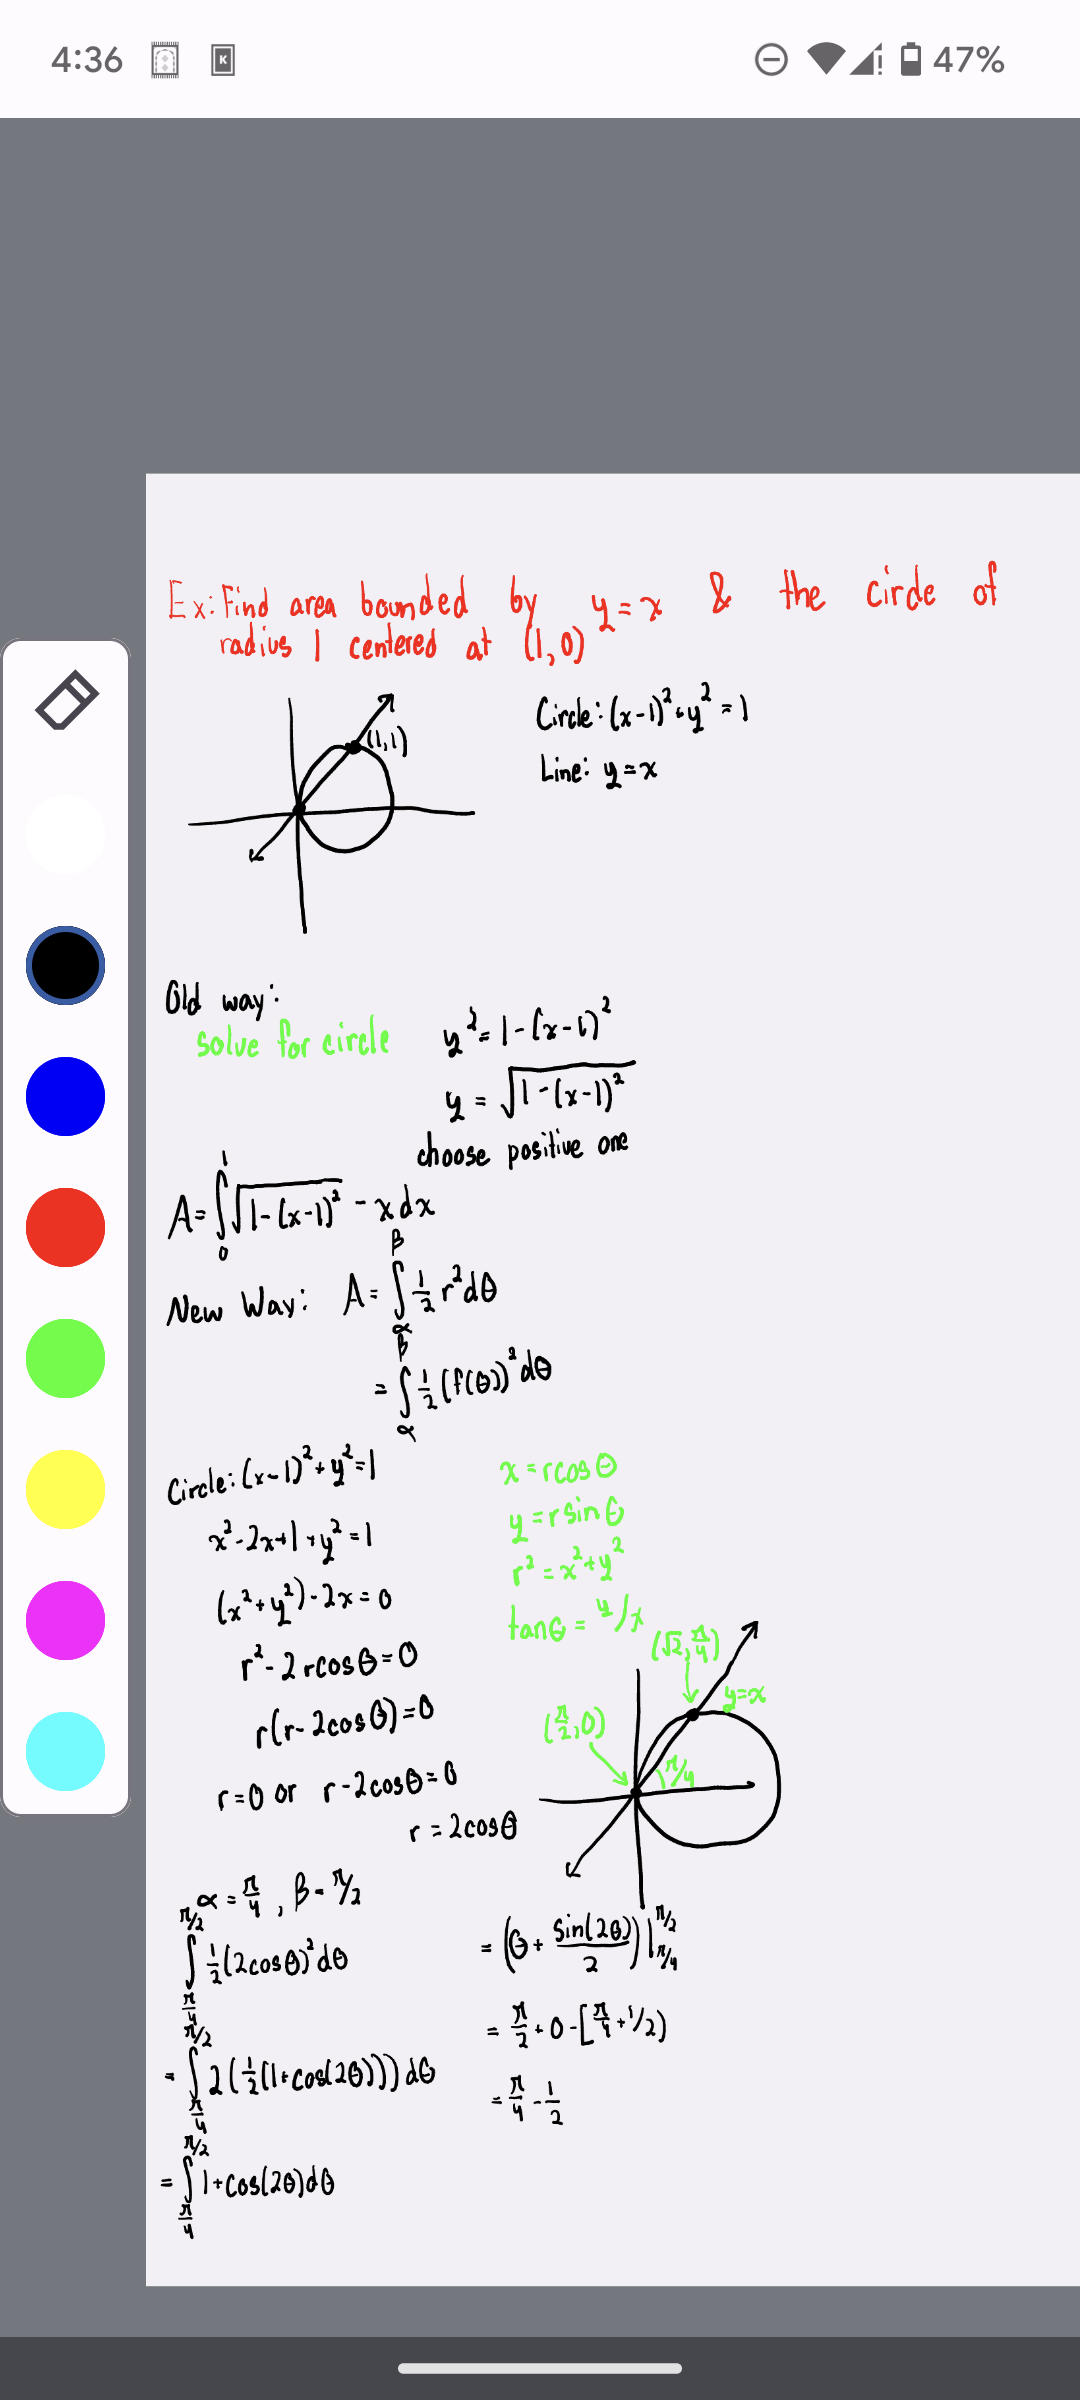 4:36
K
47%
Ex: Find area bounded by y = x & the circle of
radius 1 centered at (1,0)
(1,1)
Circle: (x-1)² + y² = 1
Line: y = x
Old way:
solve for circle
y² = 1 - (x-1)²
y = √(1 - (x-1)²)
choose positive one
A = ∫₀¹ √(1-(x-1)²) - x dx
New Way: A = ∫_α^β 1/2 r² dθ
= ∫_α^β 1/2 (f(θ))² dθ
Circle: (x-1)² + y² = 1
x² - 2x + 1 + y² = 1
(x² + y²) - 2x = 0
r² - 2rcosθ = 0
r(r - 2cosθ) = 0
r = 0 or r - 2cosθ = 0
r = 2cosθ
x = rcosθ
y = rsinθ
r² = x² + y²
tanθ = y/x
(√2, π/4)
y=x
(π/2, 0)
π/4
α = π/4, β = π/2
∫_{π/4}^{π/2} 1/2 (2cosθ)² dθ
= ∫_{π/4}^{π/2} 2(1/2(1+cos(2θ))) dθ
= ∫_{π/4}^{π/2} 1 + cos(2θ) dθ
= (θ + sin(2θ)/2) |_{π/4}^{π/2}
= π/2 + 0 - [π/4 + 1/2)
= π/4 - 1/2